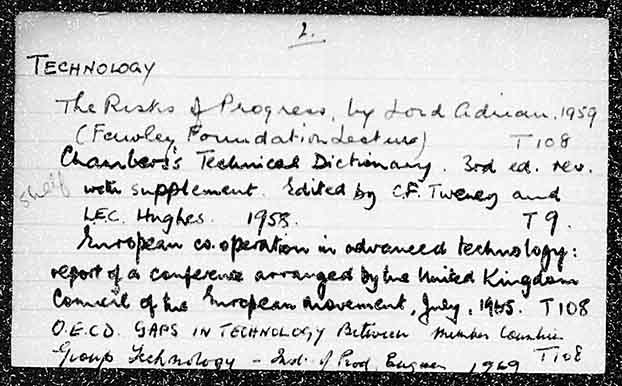 2.
TECHNOLOGY
The Risks of Progress, by Lord Adrian. 1959
(Fawley Foundation Lecture) T108
Chambers's Technical Dictionary. 3rd ed. rev.
shelf
with supplement. Edited by C.F. Tweney and
L.E.C. Hughes. 1958. T9.
European co-operation in advanced technology:
report of a conference arranged by the United Kingdom
Council of the European movement, July, 1965. T108
O.E.C.D. GAPS IN TECHNOLOGY Between member Countries
Group Technology - Inst. of Prod. Engineers 1969 T108